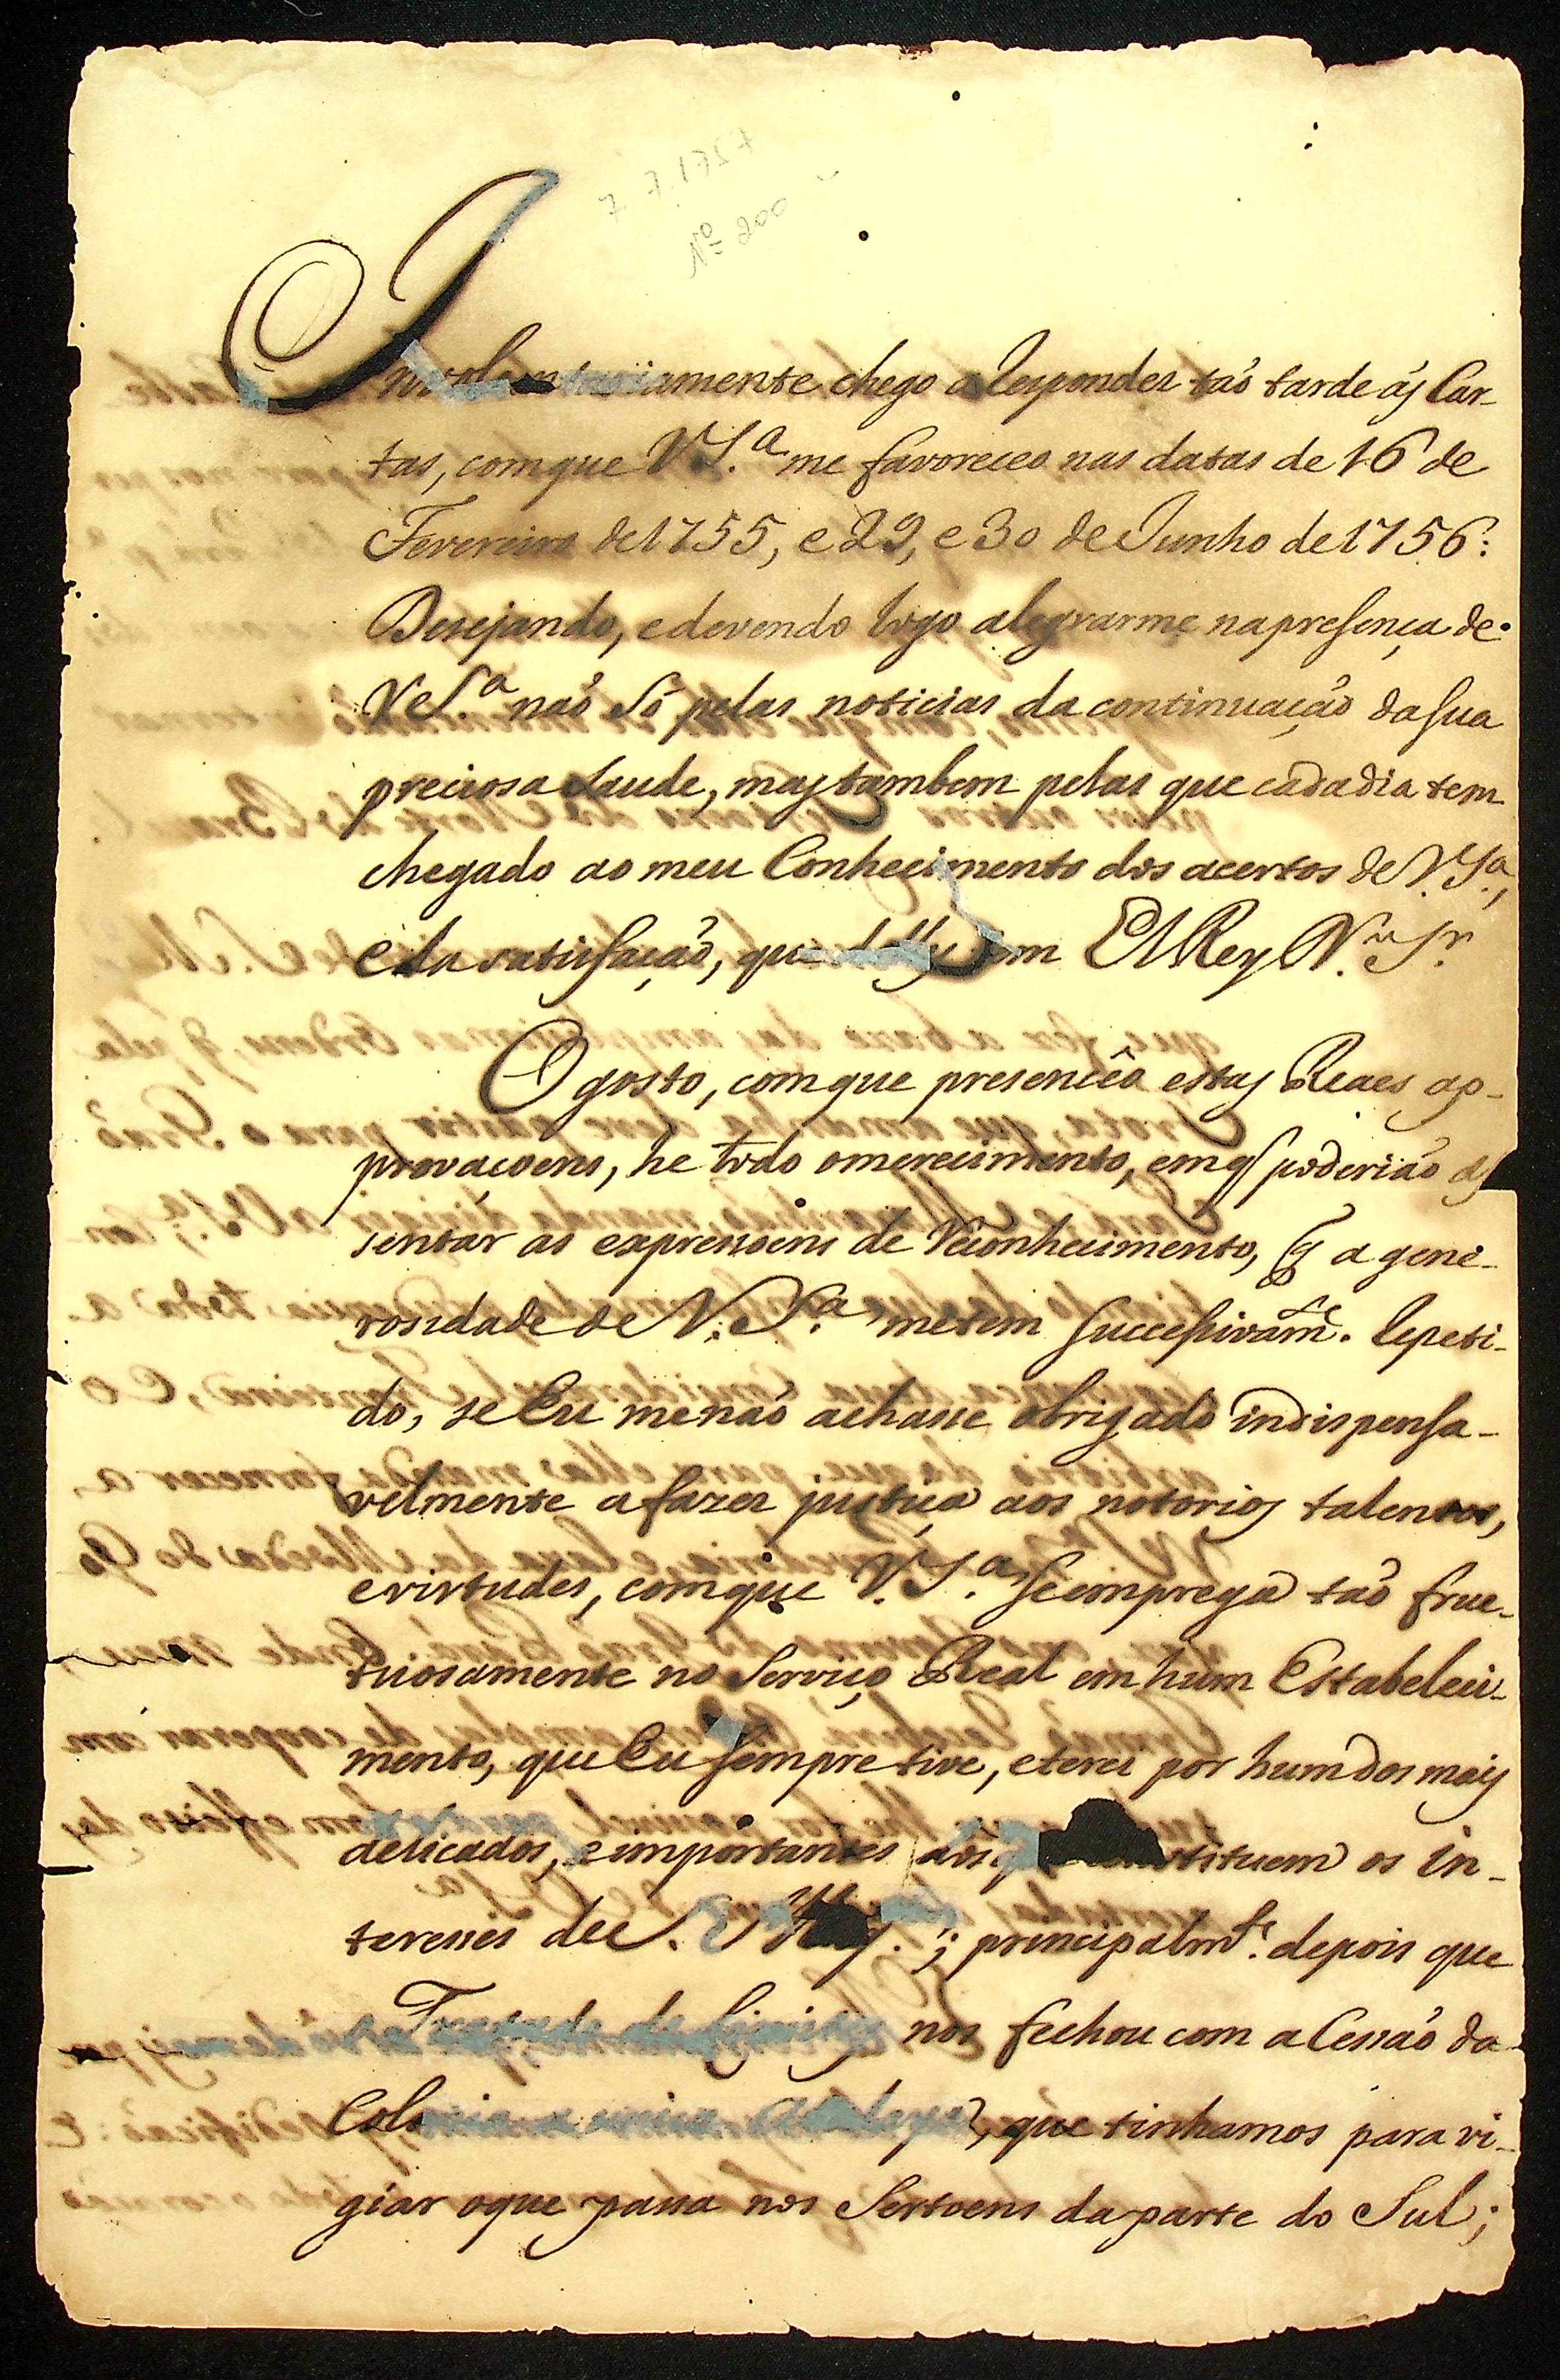 7 7. 1757
Nº 200
Involuntariamente chego a responder taõ tarde ás Car-
tas, comque V S.ª me favoreceo nas datas de 16 de
Fevereiro de 1755, e 29, e 30 de Junho de 1756:
Desejando, e devendo logo alegrarme napresença de
V S.ª naõ só pelas noticias da continuaçaõ dasua
preciosa Saude, mas tambem pelas que cada dia tem
chegado ao meu Conhecimento dos acertos de V. S.ª,
e da satisfaçaõ, que delles tem El Rey N. Sr.
O gosto, comque presencêo estas Reaes ap-
provaçoens, he todo omerecimento, emq̃ poderiaõ as
sentar as expressoens de reconhecimento, q̃ a gene-
rosidade de V. S.ª metem successivam.te repeti-
do, se Eu menaõ achasse obrigado indispensa-
velmente a fazer justiça aos notorios talentos,
e virtudes, comque V. S.ª seemprega taõ fruc-
tuosamente no Serviço Real em hum Estabeleci-
mento, que Eu sempre tive, e terei por hum dos mais
delicados, e importantes dos q constituem os in-
teresses de S. Mag.; principalm.te depois que
Tratado de Limites nos fechou com a Cessaõ da
Colonia a unica Atalaya, que tinhamos para vi-
giar oque passa nos Sertoens daparte do Sul;